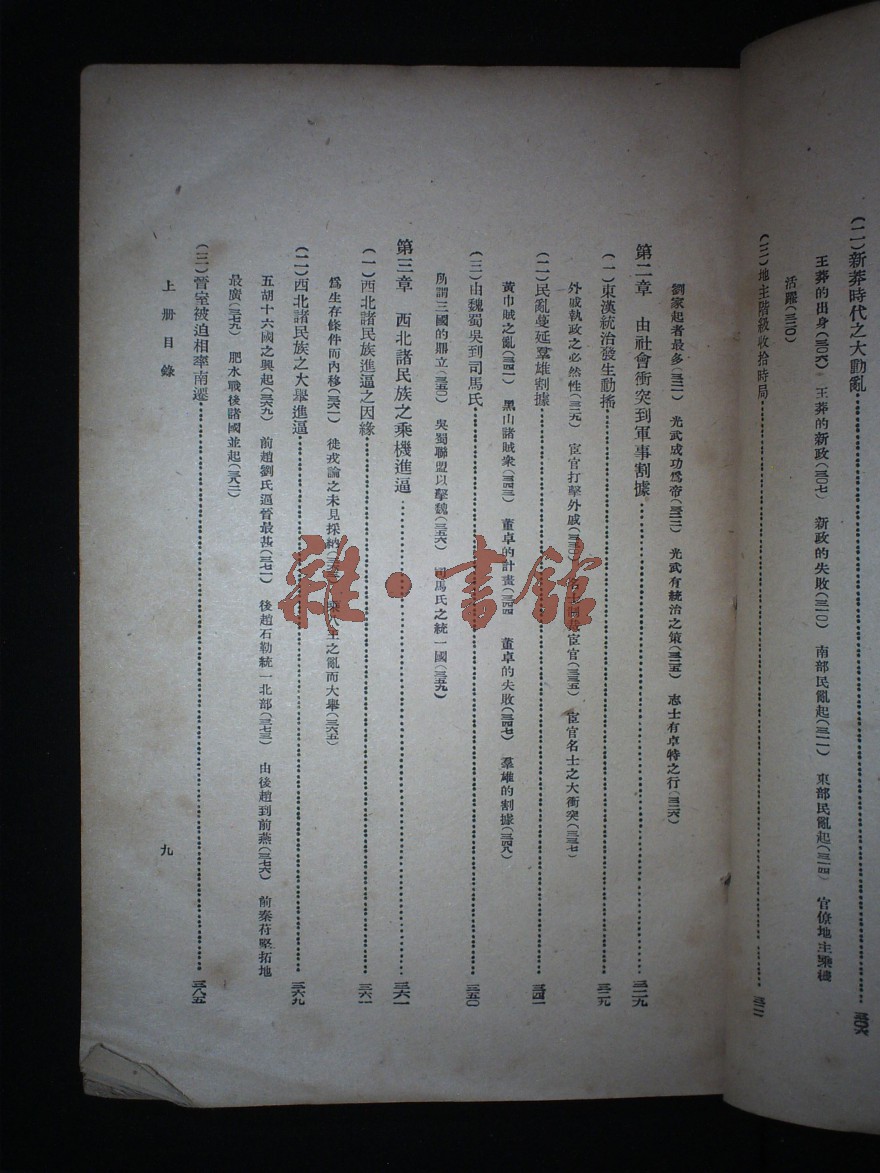 (二)新莽時代之大動亂……三〇六
王莽的出身(三〇六) 王莽的新政(三〇七) 新政的失敗(三一〇) 南部民亂起(三一一) 東部民亂起(三一四) 官僚地主乘機
活躍(三二〇)
(三)地主階級收拾時局……三二一
劉家起者最多(三二一) 光武成功爲帝(三二二) 光武有統治之策(三二五) 志士有卓特之行(三二六)
第二章 由社會衝突到軍事割據……三二九
(一)東漢統治發生動搖……三二九
外戚執政之必然性(三二九) 宦官打擊外戚(三三〇) 名士 宦官(三三五) 宦官名士之大衝突(三三七)
(二)民亂蔓延羣雄割據……三四一
黃巾賊之亂(三四一) 黑山諸賊衆(三四三) 董卓的計畫(三四四 董卓的失敗(三四七) 羣雄的割據(三四八)
(三)由魏蜀吳到司馬氏……三五〇
所謂三國的鼎立(三五〇) 吳蜀聯盟以擊魏(三五六) 司馬氏之統一國(三五九)
第三章 西北諸民族之乘機進逼……三六一
(一)西北諸民族進逼之因緣……三六一
爲生存條件而內移(三六一) 徙戎論之未見採納(三六三) 王之亂而大舉(三六五)
(二)西北諸民族之大舉進逼……三六九
五胡十六國之興起(三六九) 前趙劉氏逼晉最甚(三七一) 後趙石勒統一北部(三七三) 由後趙到前燕(三七六) 前秦苻堅拓地
最廣(三七九) 肥水戰後諸國並起(三八二)
(三)晉室被迫相率南遷……三八五
上冊目錄
九
雜·書館